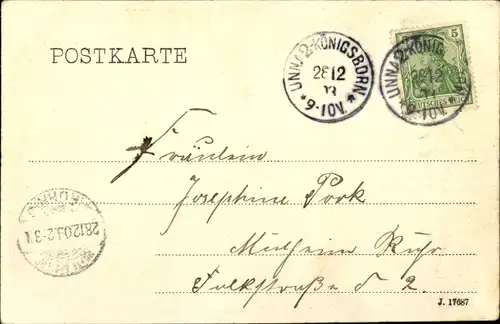 POSTKARTE
UNNA 2-KÖNIGSBORN
28 12
03
*9-10V.*
UNNA 2-KÖNIG
5
DEUTSCHES REICH
9-10V.
Fräulein
Josephine Pork
Mülheim Ruhr
28.12.03.2-3
Falkstraße 2.
J. 17687